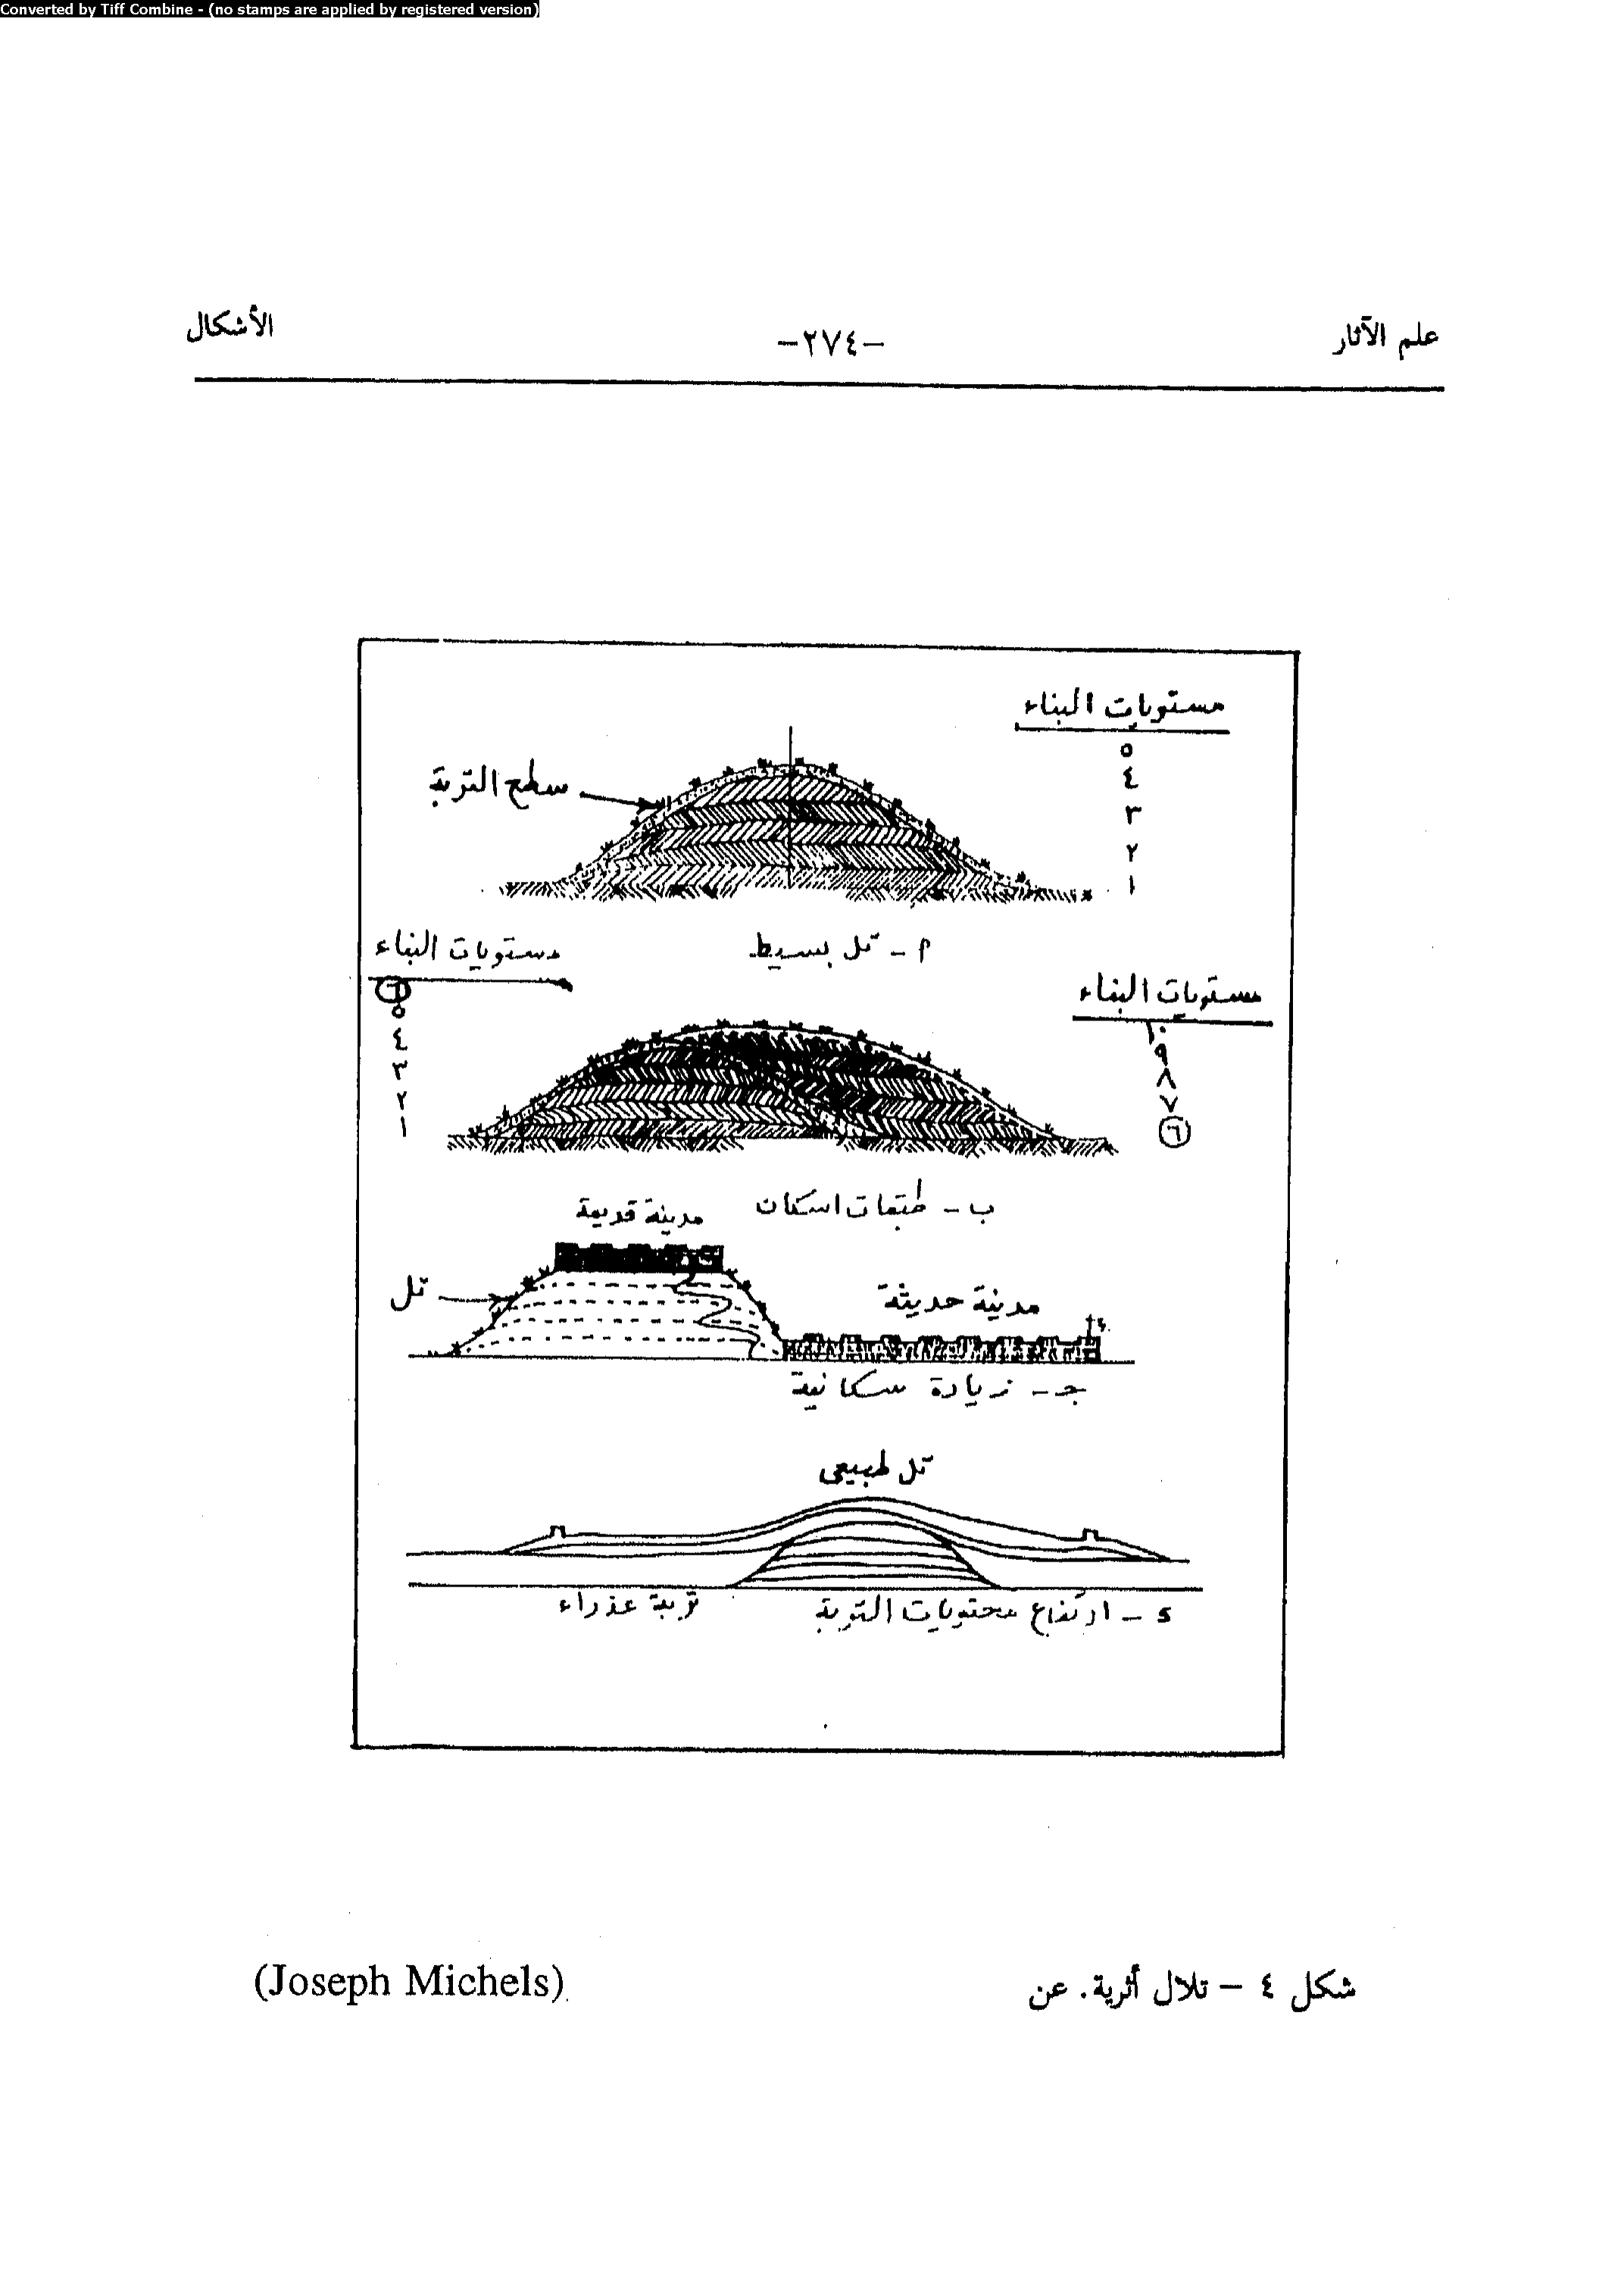 Converted by Tiff Combine - (no stamps are applied by registered version)
علم الآثار
-٢٧٤-
الأشكال
مستويات البناء
٥
٤
٣
٢
١
سطح التربة
م - تل بسيط
مستويات البناء
١٠
٩
٨
٧
٦
مستويات البناء
٦
٥
٤
٣
٢
١
ب - طبقات اسكان
مدينة قديمة
تل
مدينة حديثة
جـ - زيادة سكانية
تل طبيعى
د - ارتفاع محتويات التربة
تربة عذراء
شكل ٤ - تلال أثرية. عن
(Joseph Michels)